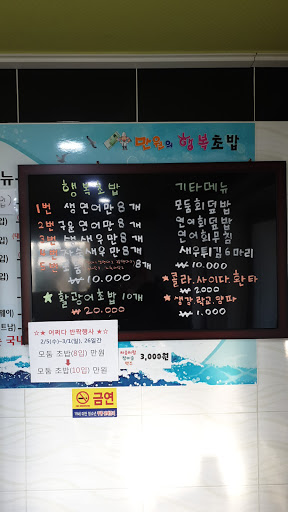 만원의 행복초밥
행복초밥
1번 생연어만 8개
2번 구운연어만 8개
3번 생새우만 8개
8개
₩10.000
★ 활광어초밥 10개
₩20.000
기타메뉴
모둠회덮밥
연어회덮밥
연어회무침
새우튀김 6마리
₩10.000
★ 콜라.사이다.환타
₩2000
★ 생강.락교.양파
₩1.000
☆★ 어쩌다 반짝행사 ★☆
2/5(수)~3/1(일), 26일간
모둠 초밥(8입) 만원
모둠 초밥(10입) 만원
3,000원
금연